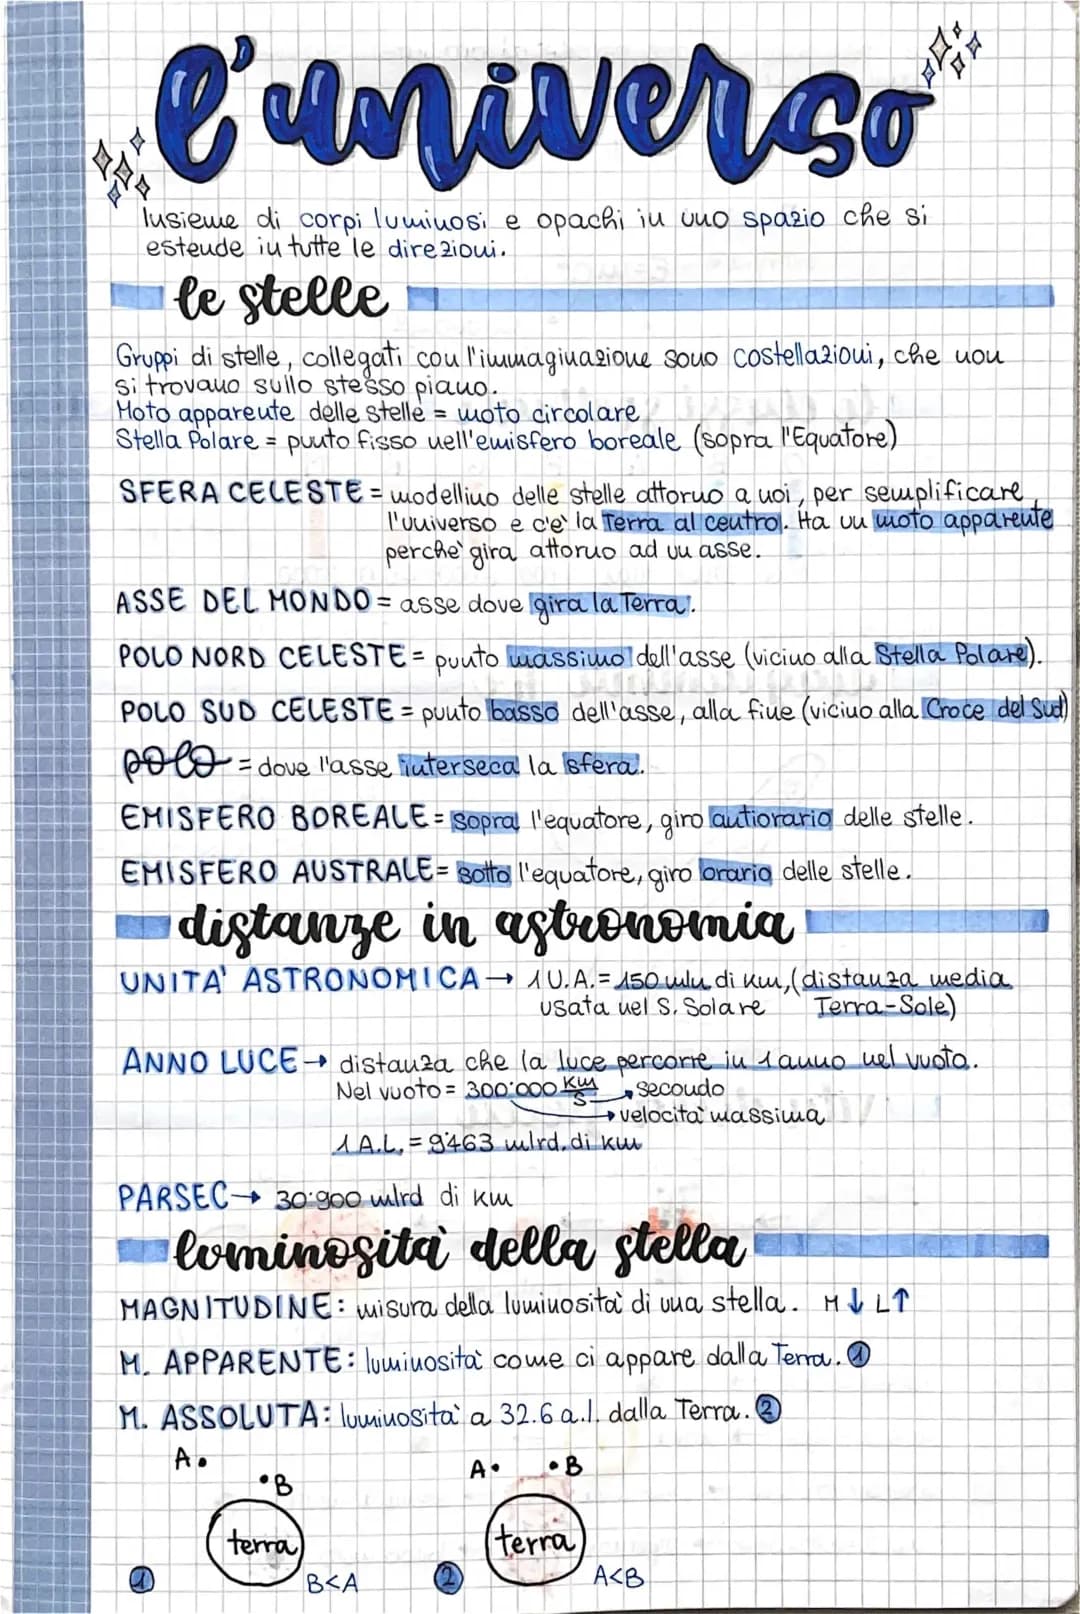 l'universo
Insieme di corpi luminosi e opachi in uno spazio che si
estende in tutte le direzioni.
le stelle
Gruppi di stelle, collegati con l'immaginazione sono costellazioni, che non
si trovano sullo stesso piano.
Moto apparente delle stelle = moto circolare
Stella Polare = punto fisso nell'emisfero boreale (sopra l'Equatore)
SFERA CELESTE = modellino delle stelle attorno a noi, per semplificare
l'universo e c'è la Terra al centro. Ha un moto apparente
perchè gira attorno ad un asse.
ASSE DEL MONDO = asse dove gira la Terra.
POLO NORD CELESTE = punto massimo dell'asse (vicino alla Stella Polare).
POLO SUD CELESTE = punto basso dell'asse, alla fine (vicino alla Croce del Sud)
polo = dove l'asse interseca la sfera.
EMISFERO BOREALE = sopra l'equatore, giro antiorario delle stelle.
EMISFERO AUSTRALE = sotto l'equatore, giro orario delle stelle.
distanze in astronomia
UNITA' ASTRONOMICA → 1 U.A. = 150 mln di km, (distanza media
usata nel S. Solare Terra-Sole)
ANNO LUCE → distanza che la luce percorre in 1 anno nel vuoto.
Nel vuoto = 300'000 km/s → secondo
→ velocità massima
1 A.L. = 9'463 mlrd. di km
PARSEC → 30'900 mlrd di km
luminosità della stella
MAGNITUDINE: misura della luminosità di una stella. M↓ L↑
M. APPARENTE: luminosità come ci appare dalla Terra. 1
M. ASSOLUTA: luminosità a 32.6 a.l. dalla Terra. 2
A. •B
A• •B
terra
terra
1 B<A
2 A<B